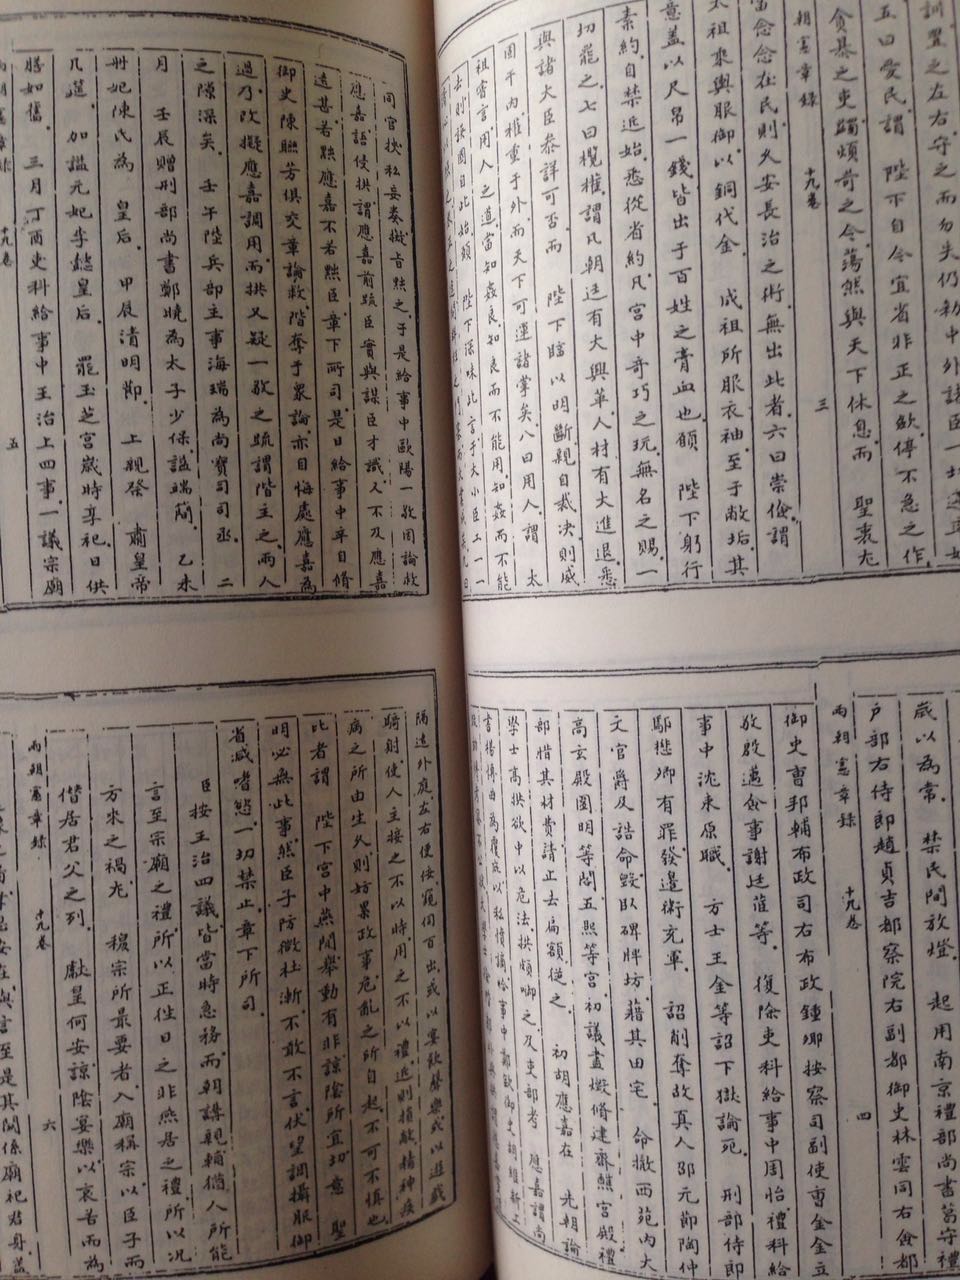 訓置之左右守之而勿失仍勅中外諸臣一
五曰愛民謂 陛下自今宜省非正之欲停不急之作
貪暴之吏蠲煩苛之令蕩然與天下休息而 聖衷尤
朝憲章録 十九卷 三
當念念在民則久安長治之術無出此者六曰崇儉謂
太祖乘輿服御以銅代金 成祖所服衣袖至于敝垢其
意蓋以尺帛一錢皆出于百姓之膏血也願 陛下躬行
素約自禁近始悉從省約凡宮中奇巧之玩無名之賜一
切罷之七曰攬權謂凡朝廷有大興革人材有大進退悉
與諸大臣叅詳可否而 陛下睿以明斷親自裁決則威
固于內權重于外而天下可運諸掌矣八曰用人謂 太
祖嘗言用人之道當知姦良知良而不能用知姦而不能
去則誤國自此始願 陛下深味此言于大小臣工一一
歲以為常 禁民間放燈 起用南京禮部尚書葛守禮
戶部右侍郎趙貞吉都察院右副都御史林雲同右僉都
兩朝憲章録 十九卷 四
御史曹邦輔布政司右布政鍾卿按察司副使曹金金立
敬殷邁僉事謝廷蒞等 復除吏科給事中周怡禮科給
事中沈束原職 方士王金等詔下獄論死 刑部侍郎
鄢懋卿有罪發邊衛充軍 詔削奪故真人邵元節陶仲
文官爵及誥命毀其碑牌坊藉其田宅 命撤西苑內大
高玄殿圓明等閣玉熙等宮初議盡燬脩建齋醮宮殿禮
部惜其材費請止去扁額從之 初胡應嘉在 先朝論
學士高拱欲中以危法拱頗啣之及吏部考 應嘉謂尚
言楊博由為覆庇以私憤謫給事中鄭欽御史胡維新
同官挾私妄奏擬旨黜之于是給事中歐陽一敬因論救
應嘉語侵拱謂應嘉前疏臣實與謀臣才識又不及應嘉
遠甚若黜應嘉不若黜臣章下所司是日給事中辛自脩
御史陳聯芳俱交章論救階奪于衆論亦自悔處應嘉為
過乃改擬應嘉調用而拱又疑一敬之疏謂階主之兩人
之隙深矣 壬午陞兵部主事海瑞為尚寶司司丞 二
月 壬辰贈刑部尚書鄭曉為太子少保謚端簡 乙未
冊妃陳氏為 皇后 甲辰清明節 上親祭 肅皇帝
几筵 加謚元妃李懿皇后 罷玉芝宮歲時享祀日供
膳如舊 三月丁酉吏科給事中王治上四事一議宗廟
兩朝憲章録 十九卷 五
隔遠外庭左右便佞窺伺百出或以宴飲聲樂或以遊戲
騎射使人主接之不以時用之不以禮近則損敝精神疾
病之所由生久則妨累政事危亂之所自起不可不慎也
比者謂 陛下宮中燕閒舉動有非諒陰所宜切意 聖
明必無此事然臣子防微杜漸不敢不言伏望調攝服御
省減嗜慾一切禁止章下所司
臣按王治四議皆當時急務而朝講親輔猶人所能
言至宗廟之禮所以正徃日之非燕居之禮所以况
方來之禍尤 穆宗所最要者入廟稱宗以臣子而
僭居君父之列 獻皇何安諒陰宴樂以哀苦而為
兩朝憲章録 十九卷 六